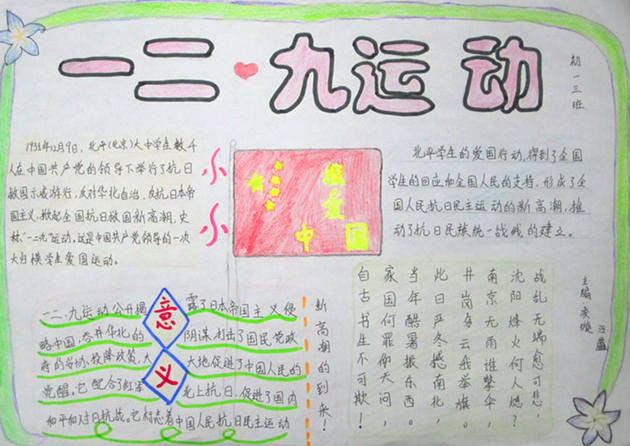 一二·九运动
初一三班
1935年12月9日,北平(北京)大中学生数千
人在中国共产党的领导下举行了抗日
救国示威游行,反对华北自治,反抗日本帝
国主义,掀起全国抗日救国新高潮,史
称"一二九"运动。这是中国共产党领导的一次
大规模学生爱国运动。
小小
我爱
中国
北平学生的爱国行动,得到了全国
学生的响应和全国人民的支持,形成了全
国人民抗日民主运动的新高潮,推
动了抗日民族统一战线的建立。
意义
一二·九运动公开揭露了日本帝国主义侵
略中国,吞并华北的阴谋,打击了国民党政
府的妥协投降政策,大大地促进了中国人民的
觉醒。它配合了红军北上抗日,促进了国内
和平和对日抗战。它标志着中国人民抗日民主运动
新高潮的到来!
战乱无端愈可悲。
沈阳烽火何人燃?
南京无雨谁擎伞,
井岗每云我举旗。
此日严冬撼南北,
当年酷暑振东西。
家国何罪你天问,
自古书生不可欺!
主编